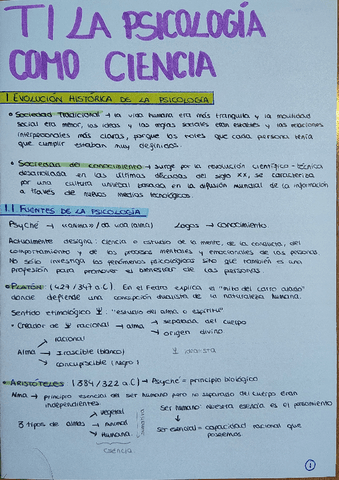 T1 LA PSICOLOGÍA
COMO CIENCIA
1. EVOLUCIÓN HISTÓRICA DE LA PSICOLOGÍA
• Sociedad Tradicional → la vida humana era más tranquila y la movilidad
social era menor, las ideas y las reglas sociales eran estables y las relaciones
interpersonales más claras, porque los roles que cada persona tenía
que cumplir estaban muy definidos.
• Sociedad del conocimiento → surge por la revolución científico-técnica
desarrollada en las últimas décadas del siglo XX, se caracteriza
por una cultura universal basada en la difusión mundial de la información
a través de nuevos medios tecnológicos.
1.1. FUENTES DE LA PSICOLOGÍA
Psyché → (alma) Logos → conocimiento.
Actualmente designa: ciencia o estudio de la mente, de la conducta, del
comportamiento y de los procesos mentales y emocionales de las personas.
No sólo investiga los fenómenos psicológicos sino que también es una
profesión para promover el bienestar de las personas.
• PLATÓN (427/347 a.C). En el Fedro explica el "mito del carro alado"
donde defiende una concepción dualista de la naturaleza humana.
Sentido etimológico Ψ. "estudio del alma o espíritu"
• Creador de Ψ racional → alma → separada del cuerpo
→ origen divino
racional
Alma → Irascible (blanco)
concupiscible (negro)
• ARISTÓTELES (384/322 a.C) → Psyché = principio biológico
Alma → principio esencial del ser humano pero no separado del cuerpo eran
independientes.
vegetal
3 tipos de almas → animal
Humana
Ser humano: nuestra esencia es el pensamiento
Ser esencial = capacidad racional que
poseemos
ciencia
1